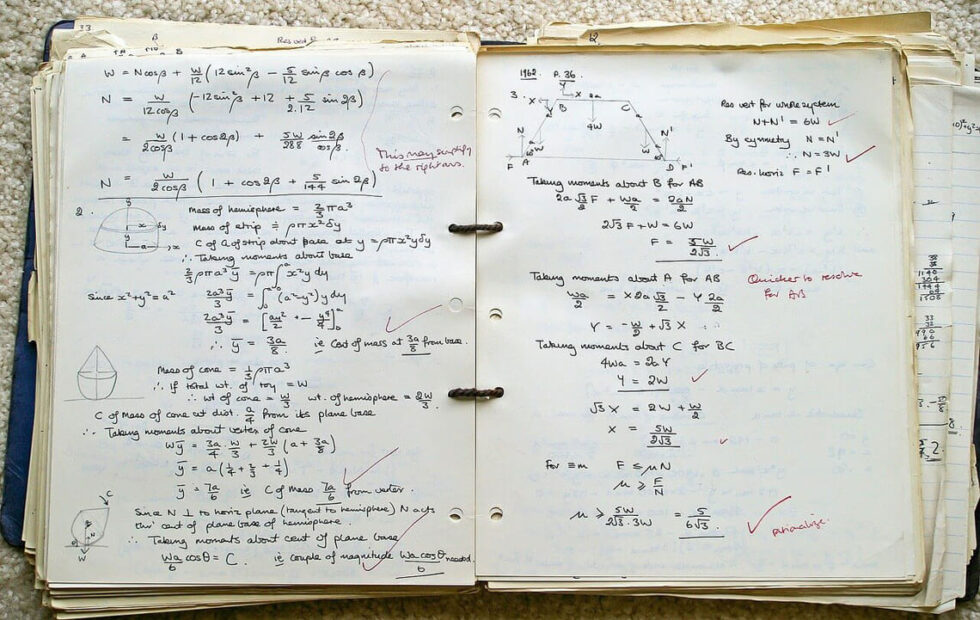 33
W = Ncosβ + W/12 (12 sin²β − 5/12 sinβ cosβ)
N = W/12cosβ (−12 sin²β + 12 + 5/2.12 sin 2β)
= W/2cosβ (1 + cos2β) + 5W/288 sin2β/cosβ.
This may simplify
to the right ans.
N = W/2cosβ (1 + cos2β + 5/144 sin 2β)
2.
Mass of hemisphere = 2/3 πa³
Mass of strip ≑ ρπx²δy
C of G of strip about base at y = ρπx²yδy
∴ Taking moments about base
2/3 ρπa³ȳ = ρπ∫₀ᵃ x²y dy
Since x²+y² = a²
2a³ȳ/3 = ∫₀ᵃ (a²−y²) y dy
2a³ȳ/3 = [ay²/2 + − y⁴/4]₀ᵃ
∴ ȳ = 3a/8. ie Cent of mass at 3a/8 from base.
Mass of cone = 1/3 ρπa³
∴ If total wt. of toy = W
∴ wt of cone = W/3 wt. of hemisphere = 2W/3.
C of Mass of cone at dist. a/4 from its plane base
∴ Taking moments about vertex of cone
Wȳ = 3a/4 . W/3 + 2W/3 (a + 3a/8)
ȳ = a(1/4 + 2/3 + 1/4)
ȳ = 7a/6 ie C of Mass 7a/6 from vertex.
Since N ⊥ to horiz plane (tangent to hemisphere) N acts
thro' cent of plane base of hemisphere.
∴ Taking moments about cent of plane base
Wa/6 cosθ = C. ie couple of magnitude Wa cosθ/6 needed.
C
W
2.
1962. P. 36
3.
Y
X
X
2a
B
C
4W
N
W
W
N'
F
A
D
F'
Res vert for whole system
N+N' = 6W
By symmetry N = N'
∴ N = 3W
Res. horiz F = F'
Taking moments about B for AB
2a√3/2 F + Wa/2 = 2aN/2
2√3 F + W = 6W
F = 5W/2√3
Taking moments about A for AB
Quicker to resolve
for AB
Wa/2 = X 2a √3/2 − Y 2a/2
Y = −W/2 + √3 X
Taking moments about C for BC
4Wa = 2aY
Y = 2W
√3 X = 2W + W/2
X = 5W/2√3
For ≡m F ≤ μN
μ ≥ F/N
μ ≥ 5W/2√3.3W = 5/6√3.
rationalize.